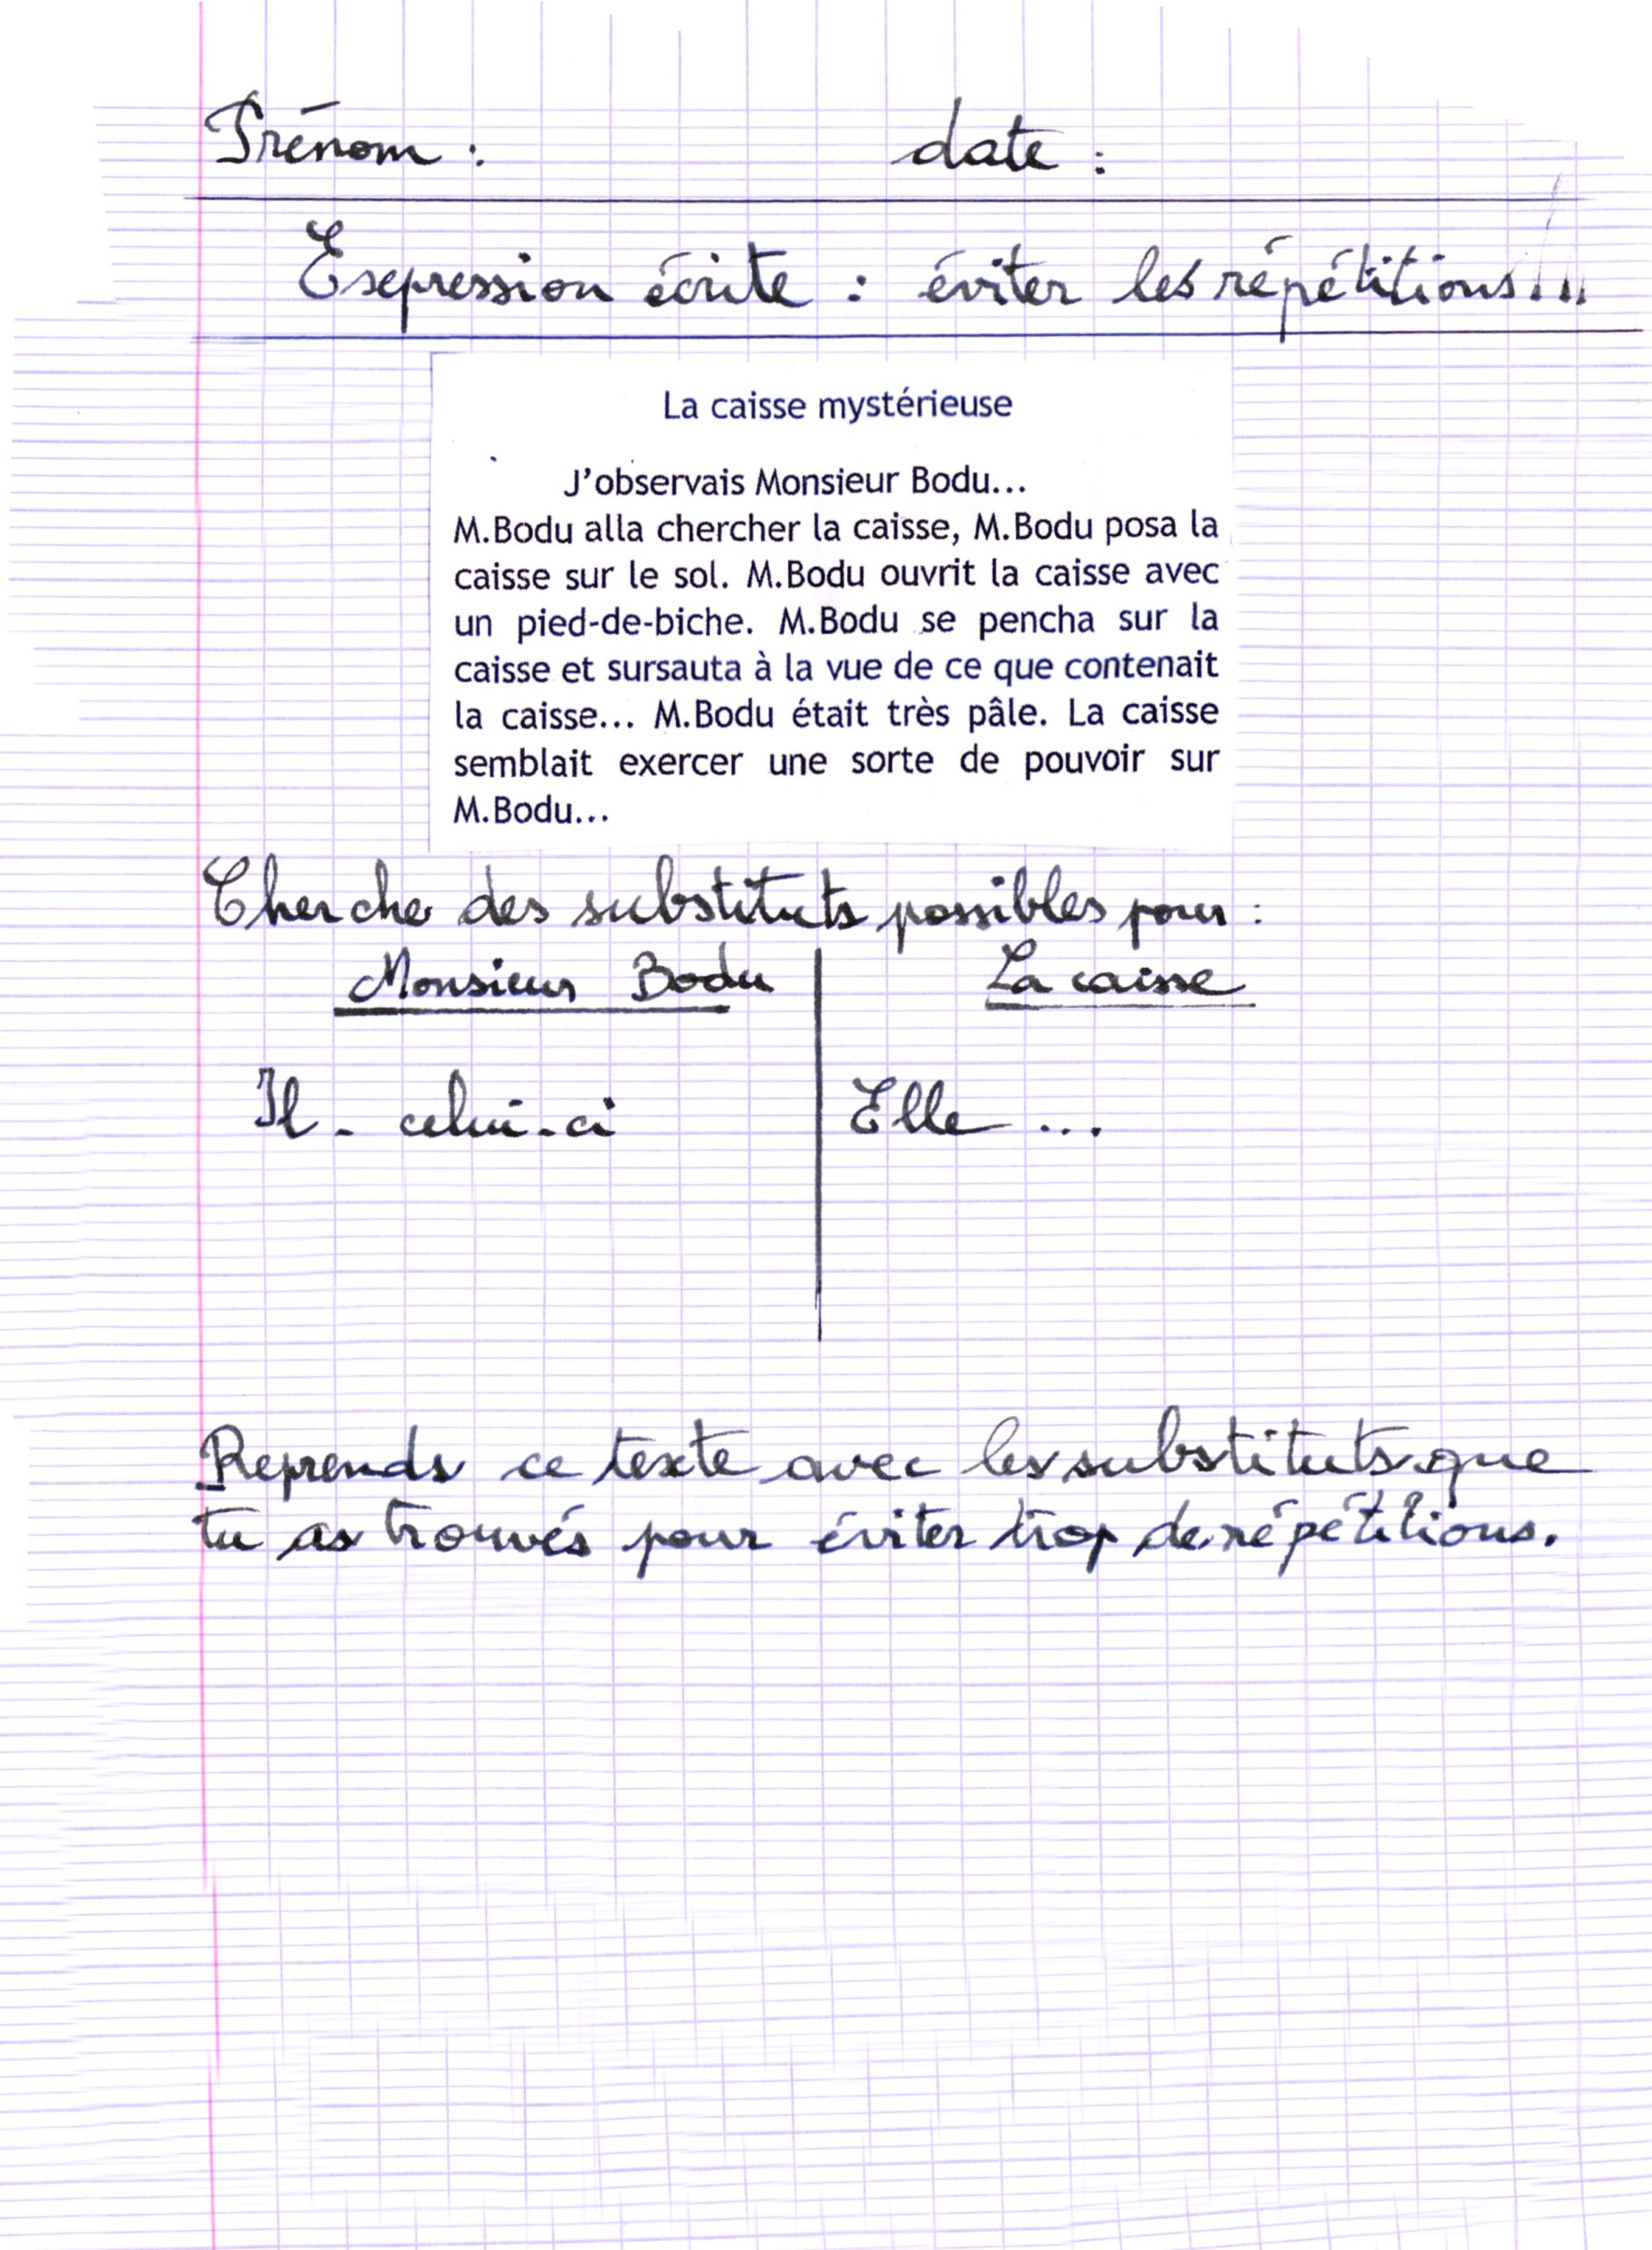 Prénom : date :
Expression écrite : éviter les répétitions...
La caisse mystérieuse
J'observais Monsieur Bodu...
M.Bodu alla chercher la caisse, M.Bodu posa la
caisse sur le sol. M.Bodu ouvrit la caisse avec
un pied-de-biche. M.Bodu se pencha sur la
caisse et sursauta à la vue de ce que contenait
la caisse... M.Bodu était très pâle. La caisse
semblait exercer une sorte de pouvoir sur
M.Bodu...
Cherche des substituts possibles pour :
Monsieur Bodu La caisse
Il - celui-ci Elle ...
Reprends ce texte avec les substituts que
tu as trouvés pour éviter trop de répétitions.